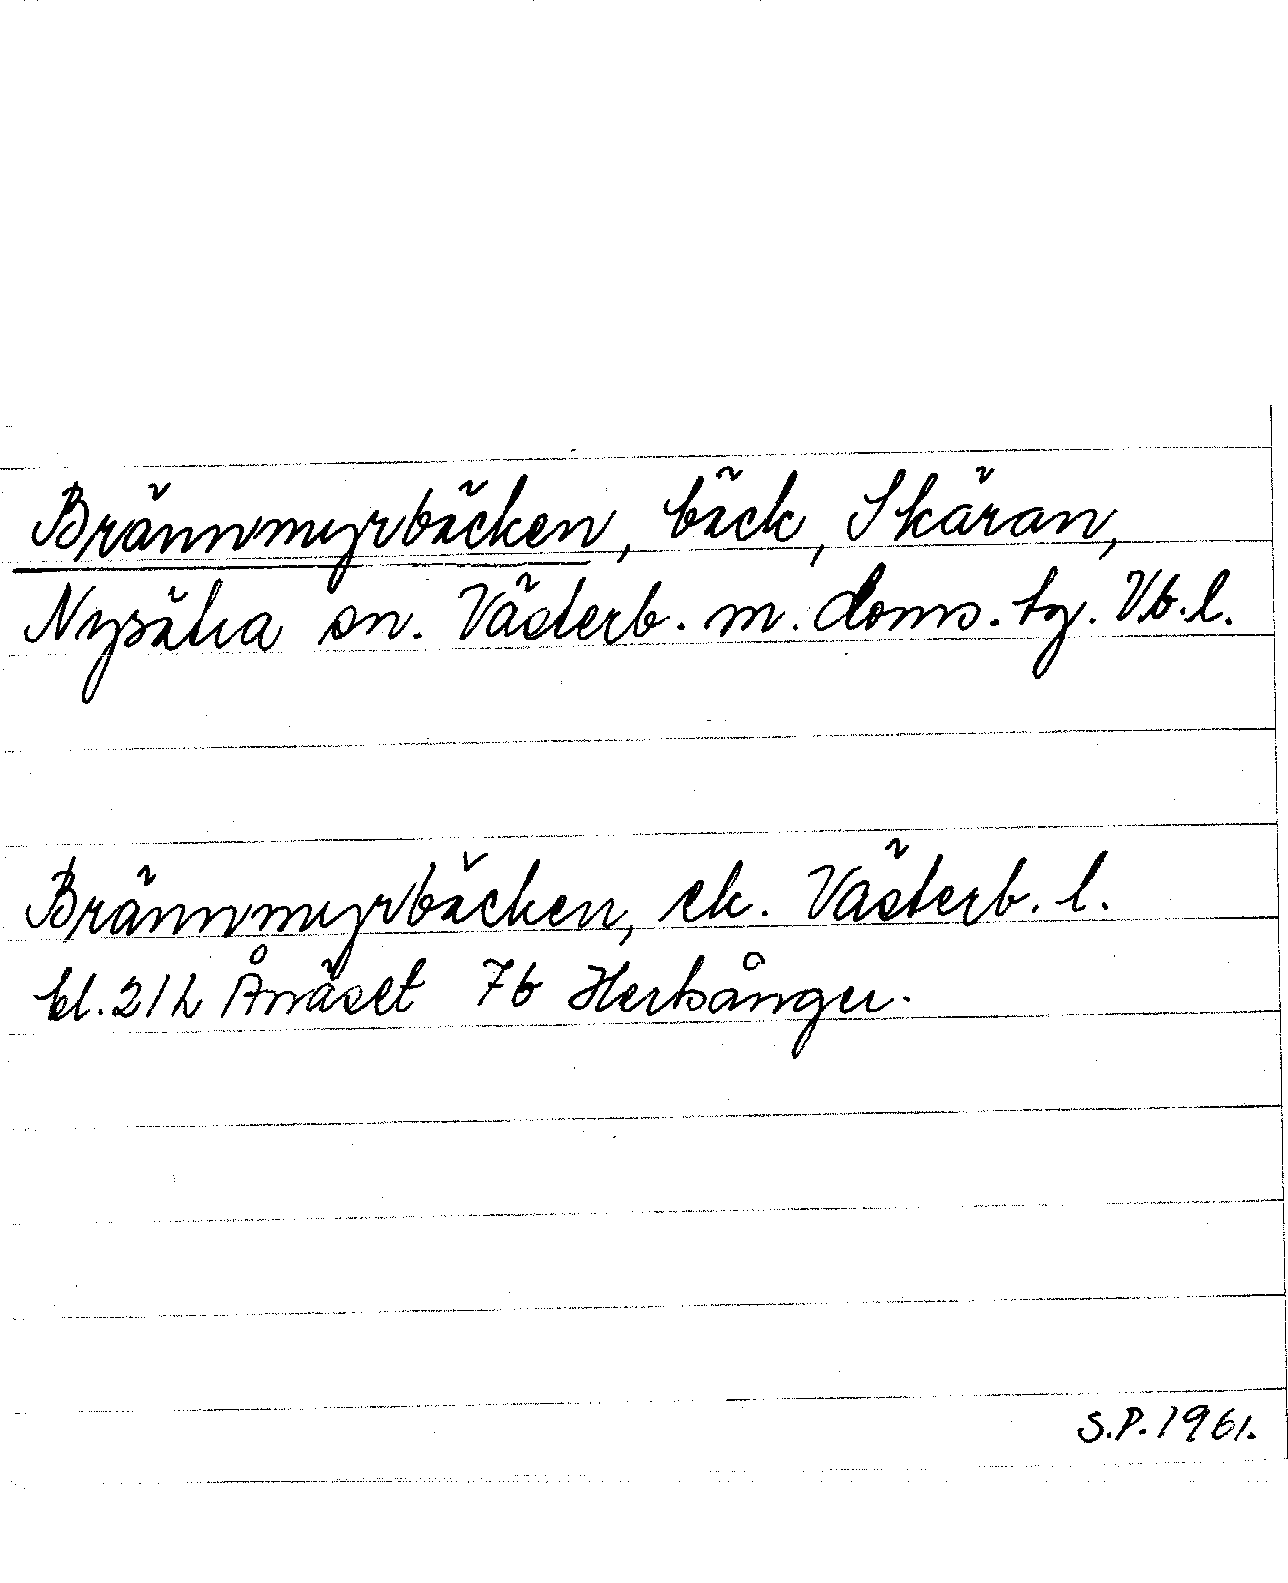 Brännmyrbäcken, bäck, Skäran,
Nysätra sn. Västerb. m. doms. tg. Vb. l.
Brännmyrbäcken, ek. Västerb. l.
bl. 21 L Ånäset 7b Hertsånger.
S.P. 1961.